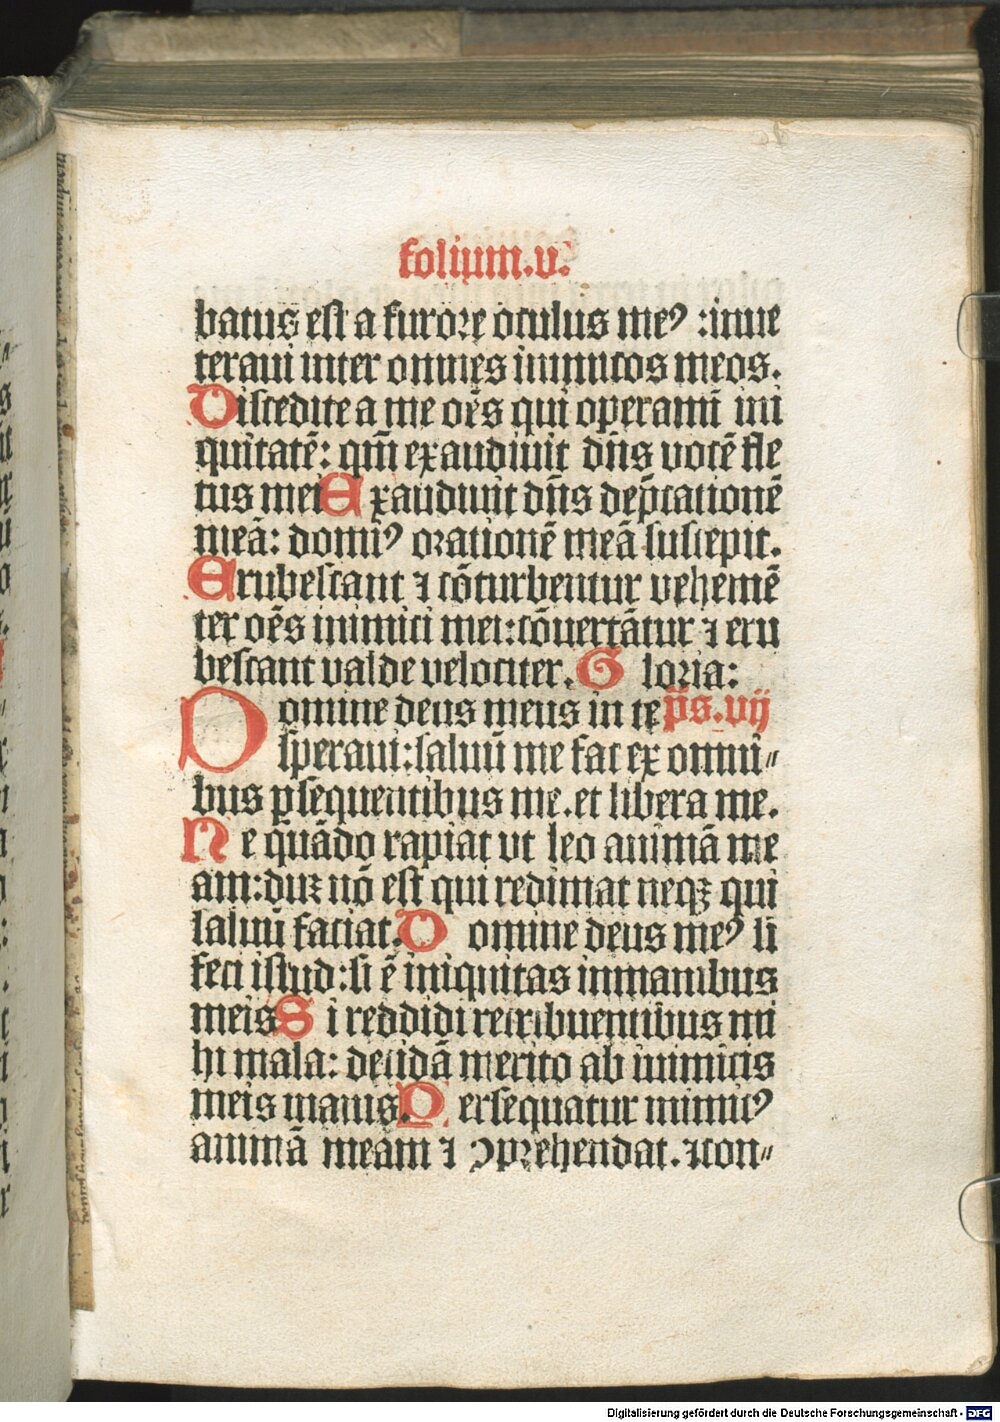 folium.v.
batus est a furore oculus meꝰ :inue
teraui inter omnes inimicos meos.
Discedite a me oēs qui operamī ini
quitatē: qm̄ exaudiuit dn̄s vocē fle
tus mei Exaudiuit dn̄s dep̄cationē
meā: domiꝰ orationē meā suscepit.
Erubescant ⁊ cōturbentur vehemē
ter oēs inimici mei:cōuertātur ⁊ eru
bescant valde velociter. Gloria:
Domine deus meus in te p̄s.vij
speraui:saluū me fac ex omni⸗
bus ꝑsequentibus me.et libera me.
Ne quādo rapiat vt leo animā me
am:duꝫ nō est qui redimat neqꝫ qui
saluū faciat. Domine deus meꝰ si
feci istud:si ē iniquitas inmanibus
meis Si reddidi retribuentibus mi
hi mala: decidā merito ab inimicis
meis inanis. Persequatur inimicꝰ
animā meam ⁊ ꝯprehendat. ⁊con⸗
Digitalisierung gefördert durch die Deutsche Forschungsgemeinschaft - DFG